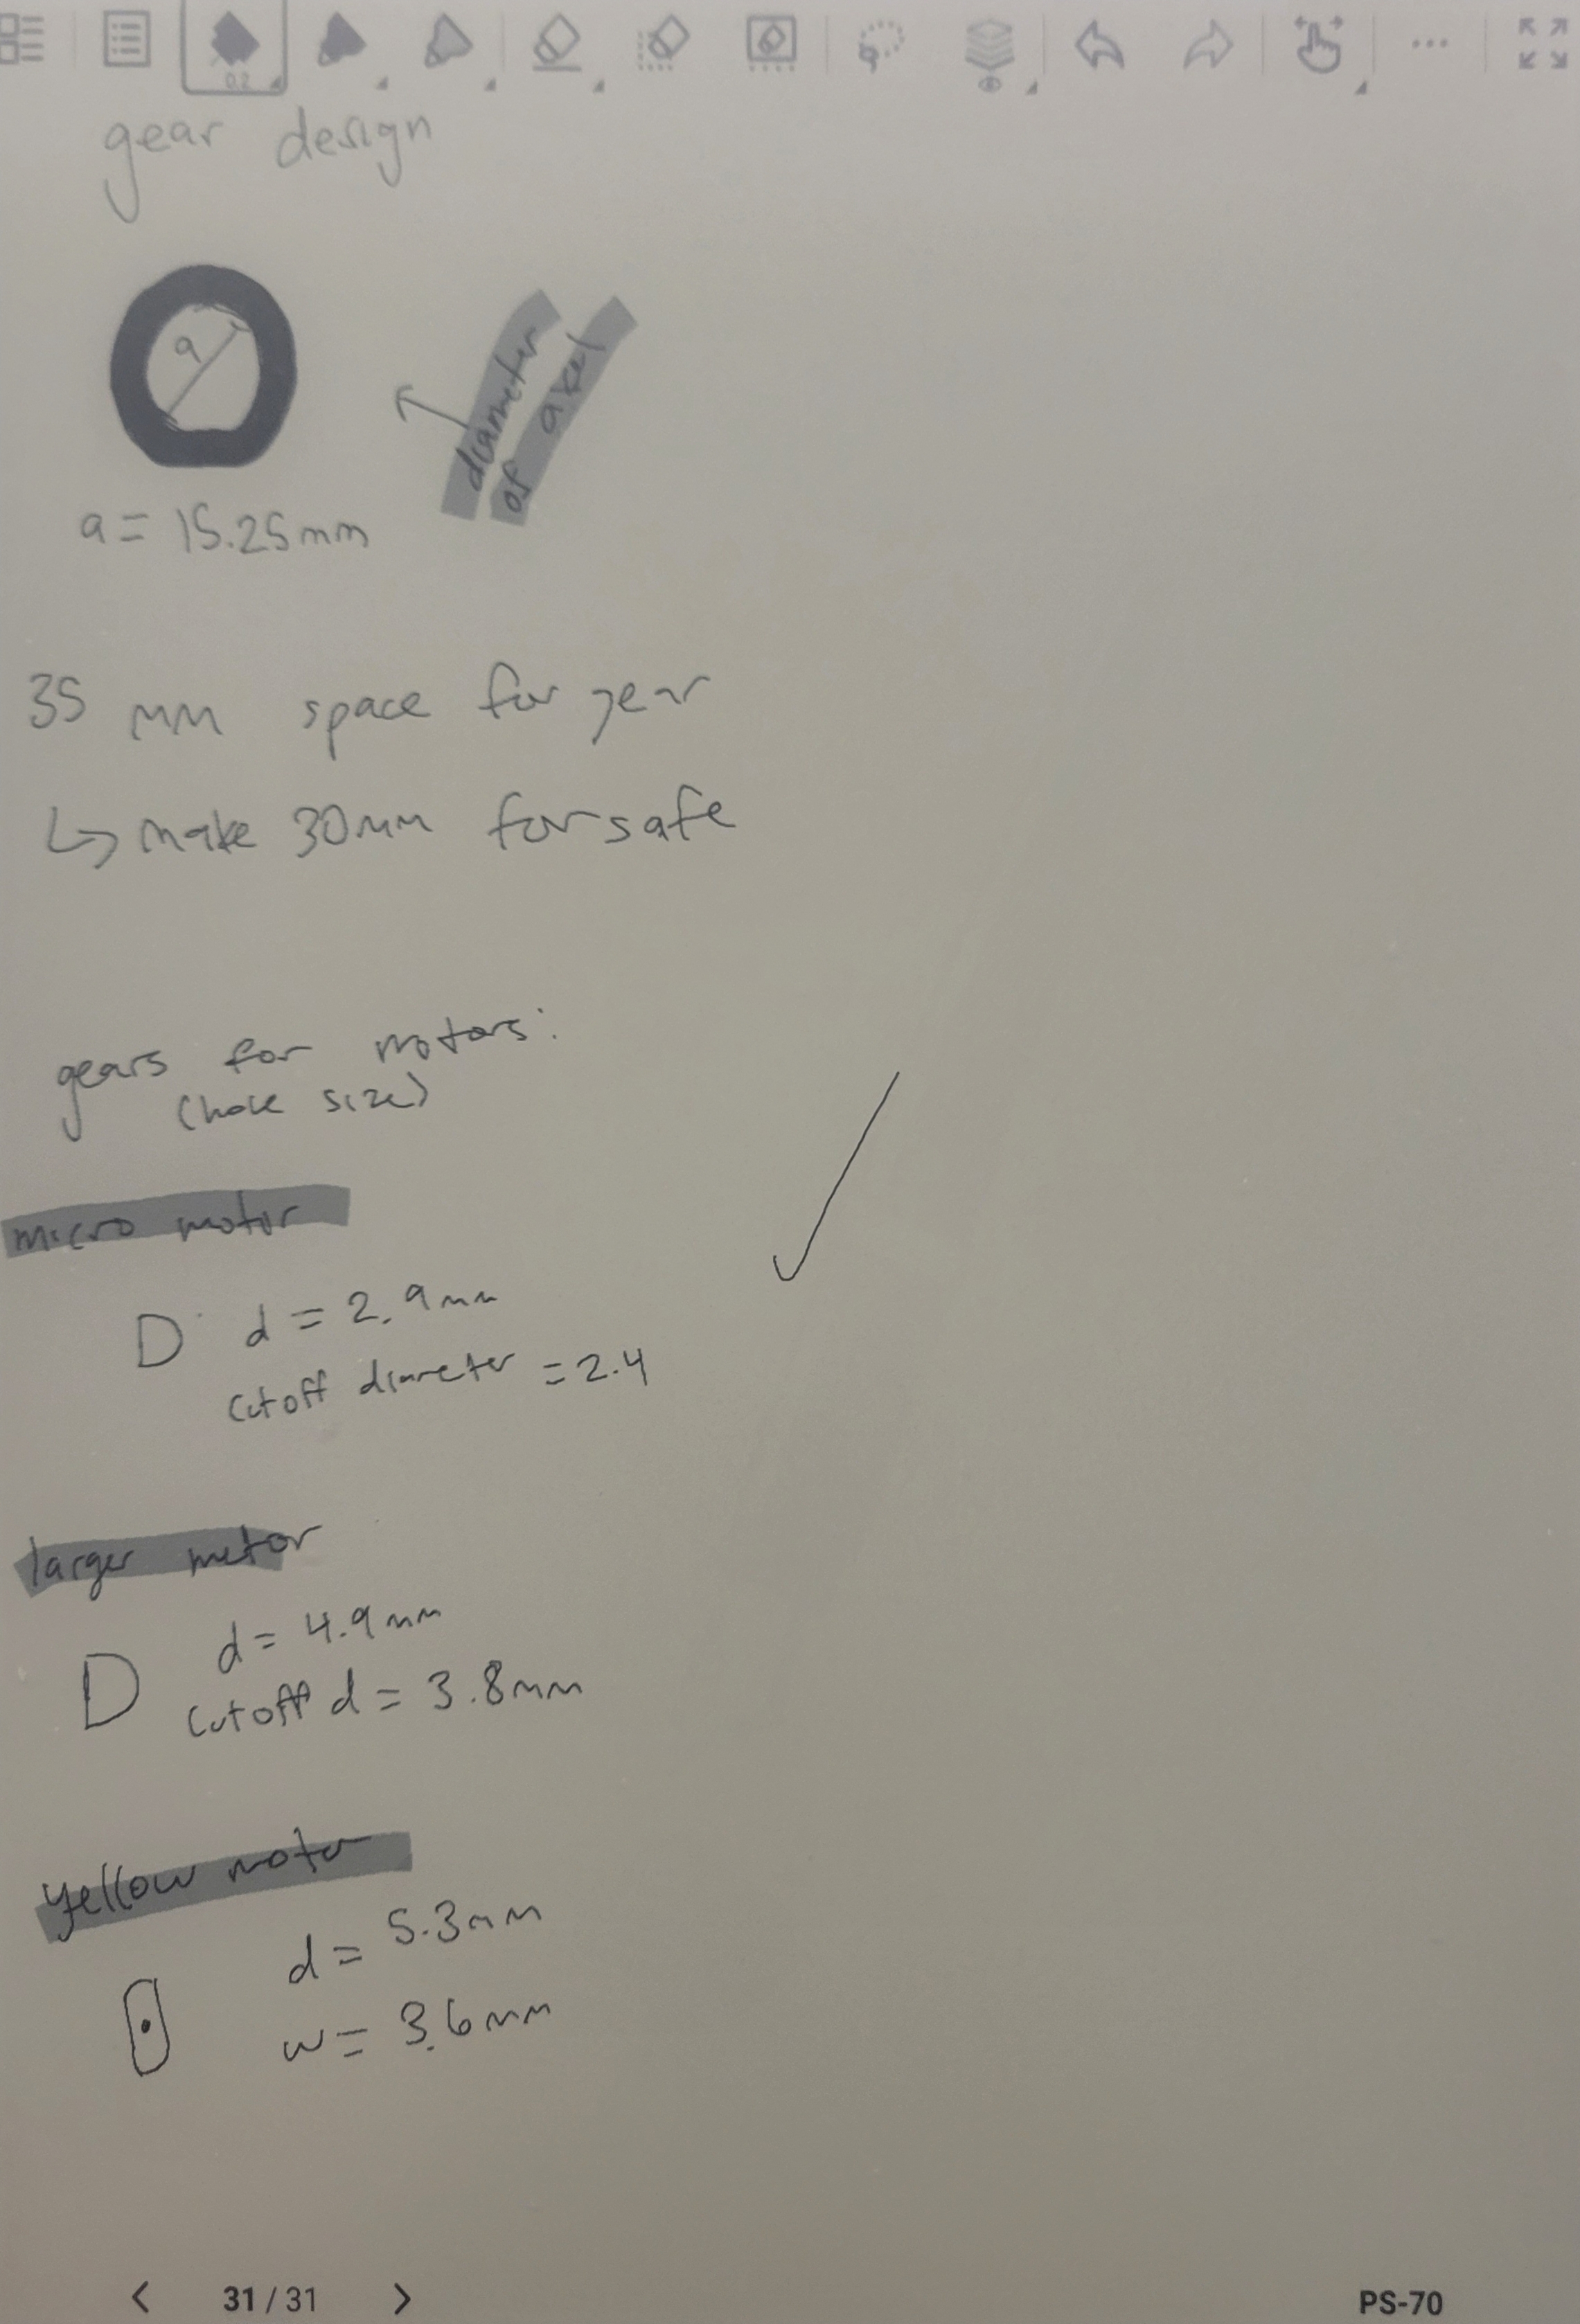 0.2
gear design
a
diameter
of axel
a = 15.25mm
35 mm space for gear
↳ make 30mm for safe
gears for motors:
(hole size)
micro motor
D d = 2.9mm
cutoff diameter = 2.4
larger motor
d = 4.9mm
D cutoff d = 3.8mm
yellow motor
d = 5.3mm
w = 3.6mm
< 31 / 31 >
PS-70